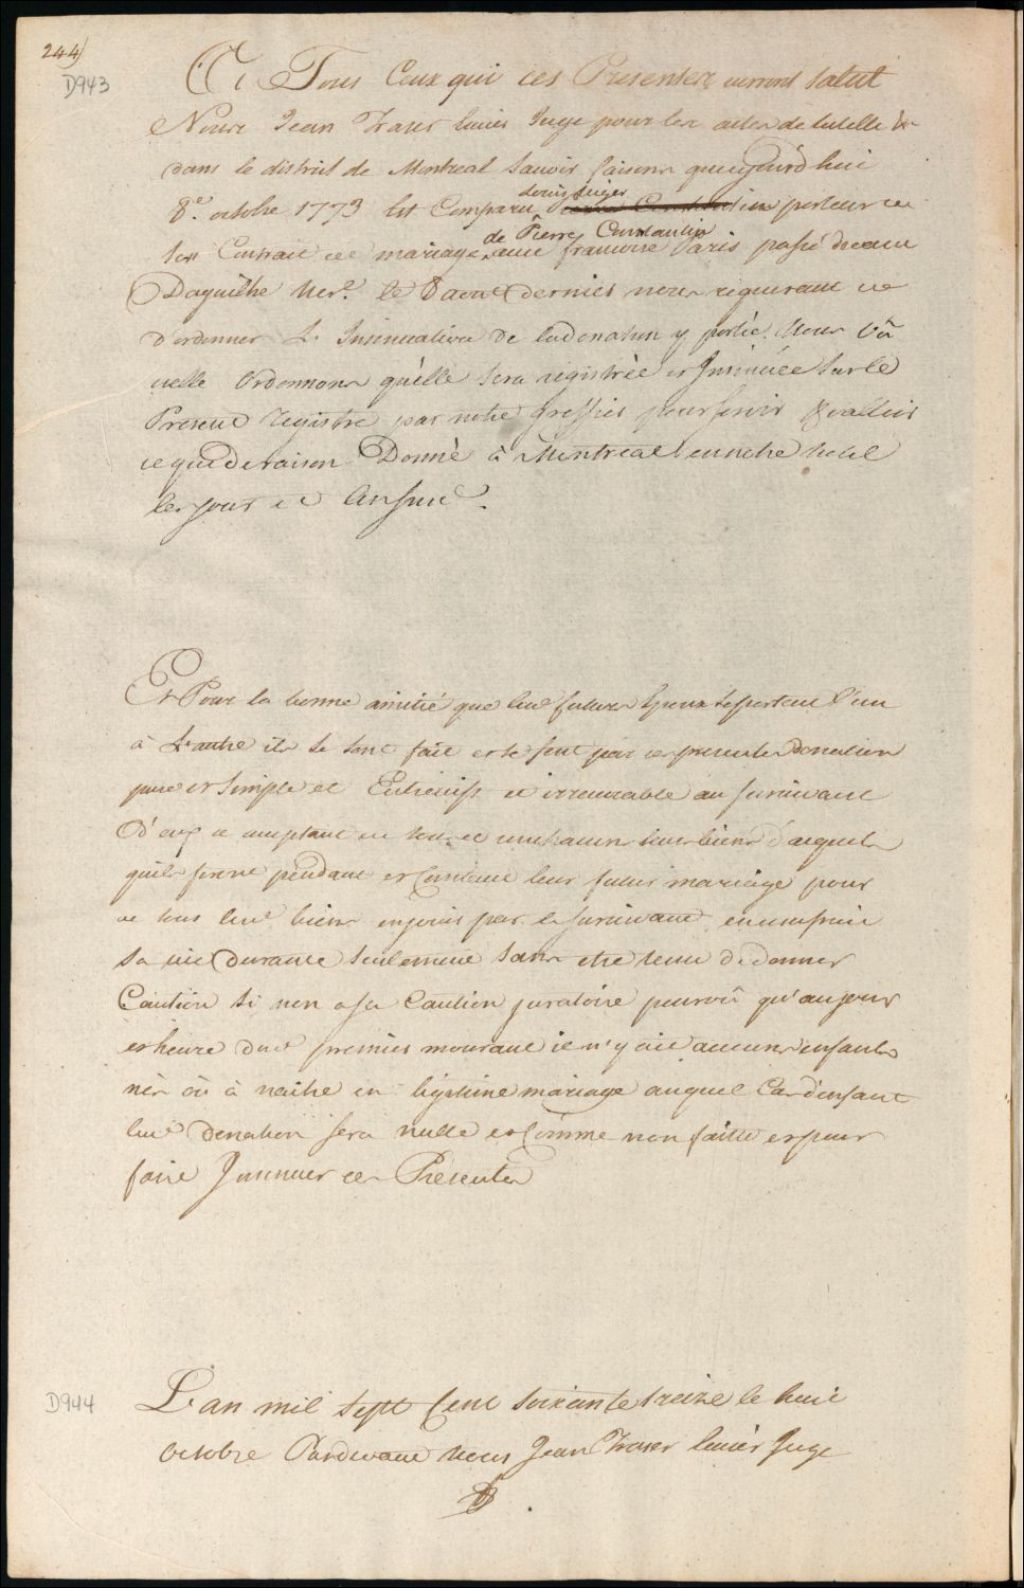 244)
D943
A Tous Ceux qui ces Presentes verront Salut
Nous Jean Fraser Ecuier Juge pour les actes de tutelle &c
dans le district de Montreal Savoir faisons qu'aujourd'hui
8.e octobre 1773 Est Comparu Louis Juger porteur
du Contrait de mariage de Pierre Constantin avec francoise Paris passé devant
Daguilhe Not.e le 8 aout dernier nous requerant
d'ordonner L'Insinuation de la donation y portée. Nous
Ordonnons qu'elle sera registrée et Insinuée Sur le
Present Registre par notre Greffier pour servir & valloir
ce que de raison Donné à Montreal en notre hotel
les jour et An Susd.
Et Pour la bonne amitié que les d. futurs Epoux se portent l'un
à L'autre ils se sont fait et se font par ces presentes Donation
pure et Simple et Entrevifs et irrevocable au survivant
D'eux ce acceptant de tous et un chacun leurs biens
qu'ils feront pendant et Constant leur futur mariage pour
de tous les d. biens en jouir par le Survivant en usufruit
sa vie durante Seulement sans etre tenu de donner
Caution si non a sa Caution juratoire pourvû qu'au jour
et heure dud. premier mourant il n'y ait aucuns enfants
nés où à naitre en legitime mariage auquel Cas d'enfant
lad. Donation sera nulle et Comme non faitte et pour
faire Insinuer ces Presentes
D944
L'an mil Sept Cent Soixante treize le huit
octobre Pardevant nous Jean Fraser Ecuier Juge